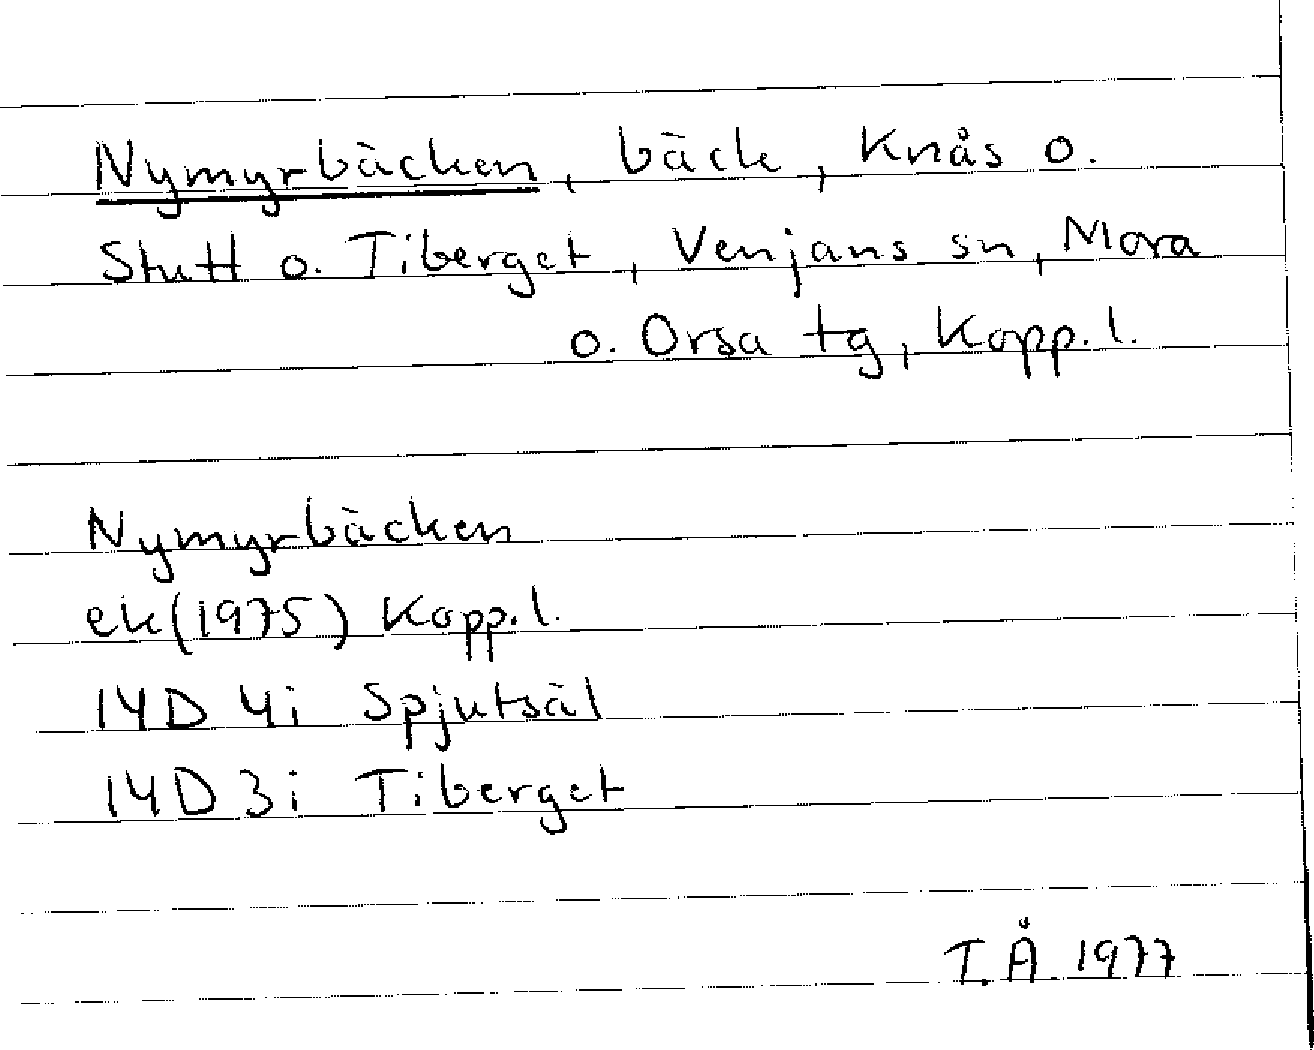 Nymyrbäcken, bäck, Knås o.
Stutt o. Tiberget, Venjans sn, Mora
o. Orsa tg, Kopp.l.
Nymyrbäcken
ek(1975) Kopp.l.
14D 4i Spjutsäl
14D 3i Tiberget
I.Å. 1977